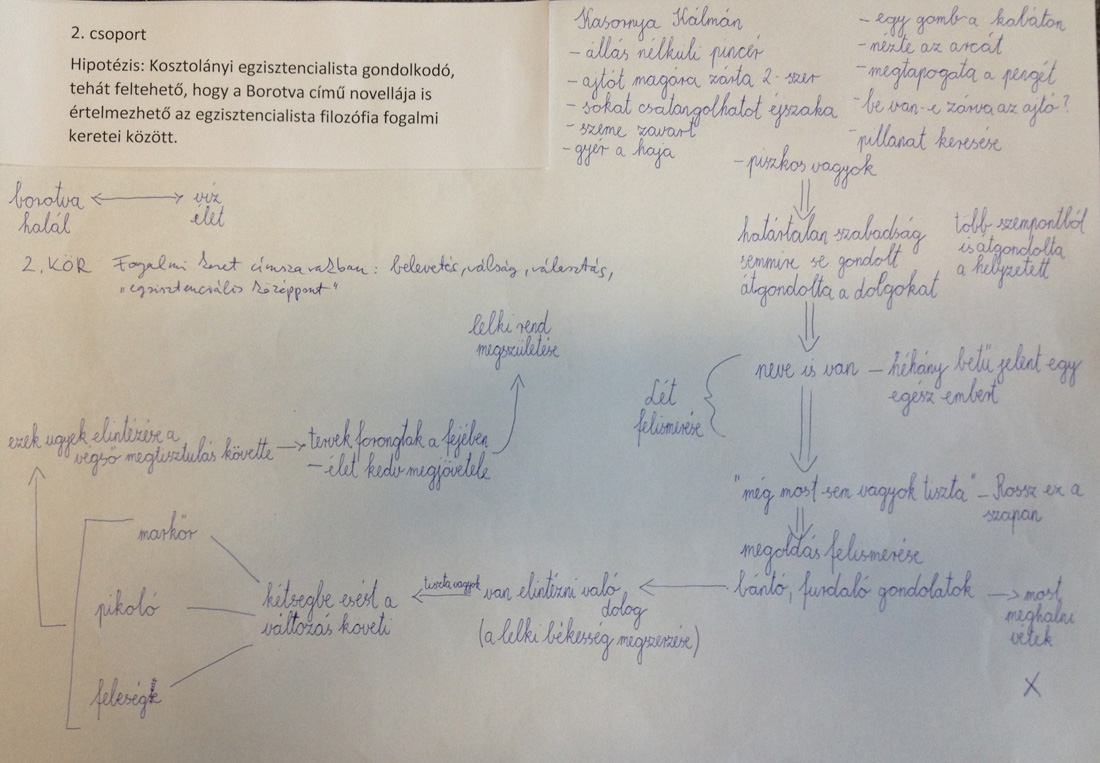 2. csoport
Hipotézis: Kosztolányi egzisztencialista gondolkodó,
tehát feltehető, hogy a Borotva című novellája is
értelmezhető az egzisztencialista filozófia fogalmi
keretei között.
Kasornya Kálmán
- állás nélkuli pincér
- ajtót magára zárta 2-szer
- sokat csatangolhatot éjszaka
- szeme zavart
- gyér a haja
- egy gomb a kabáton
- nézte az arcát
- megtapogata a pengét
- be van-e zárva az ajtó?
- pillanat keresése
- piszkos vagyok
borotva
halál
víz
élet
2. KÖR Fogalmi keret címszavakban: belevetés, válság, választás,
"egzisztenciális középpont"
határtalan szabadság
semmire se gondolt
átgondolta a dolgokat
több szempontból
is átgondolta
a helyzetett
lelki rend
megszületése
neve is van - néhány betű jelent egy
egész embert
Lét
felismerése
ezek ugyek elintézése a
végső megtisztulás követte
tervek forongtak a fejében
- élet kedv megjövetele
"még most sem vagyok tiszta" - Rossz ez a
szapan
megoldás felismerése
bántó, furdaló gondolatok
most
meghalni
vétek
X
van elintézni való
dolog
(a lelki békesség megszerzése)
tiszta vagyok
kétsegbe esést a
változás követi
markőr
pikoló
feleség